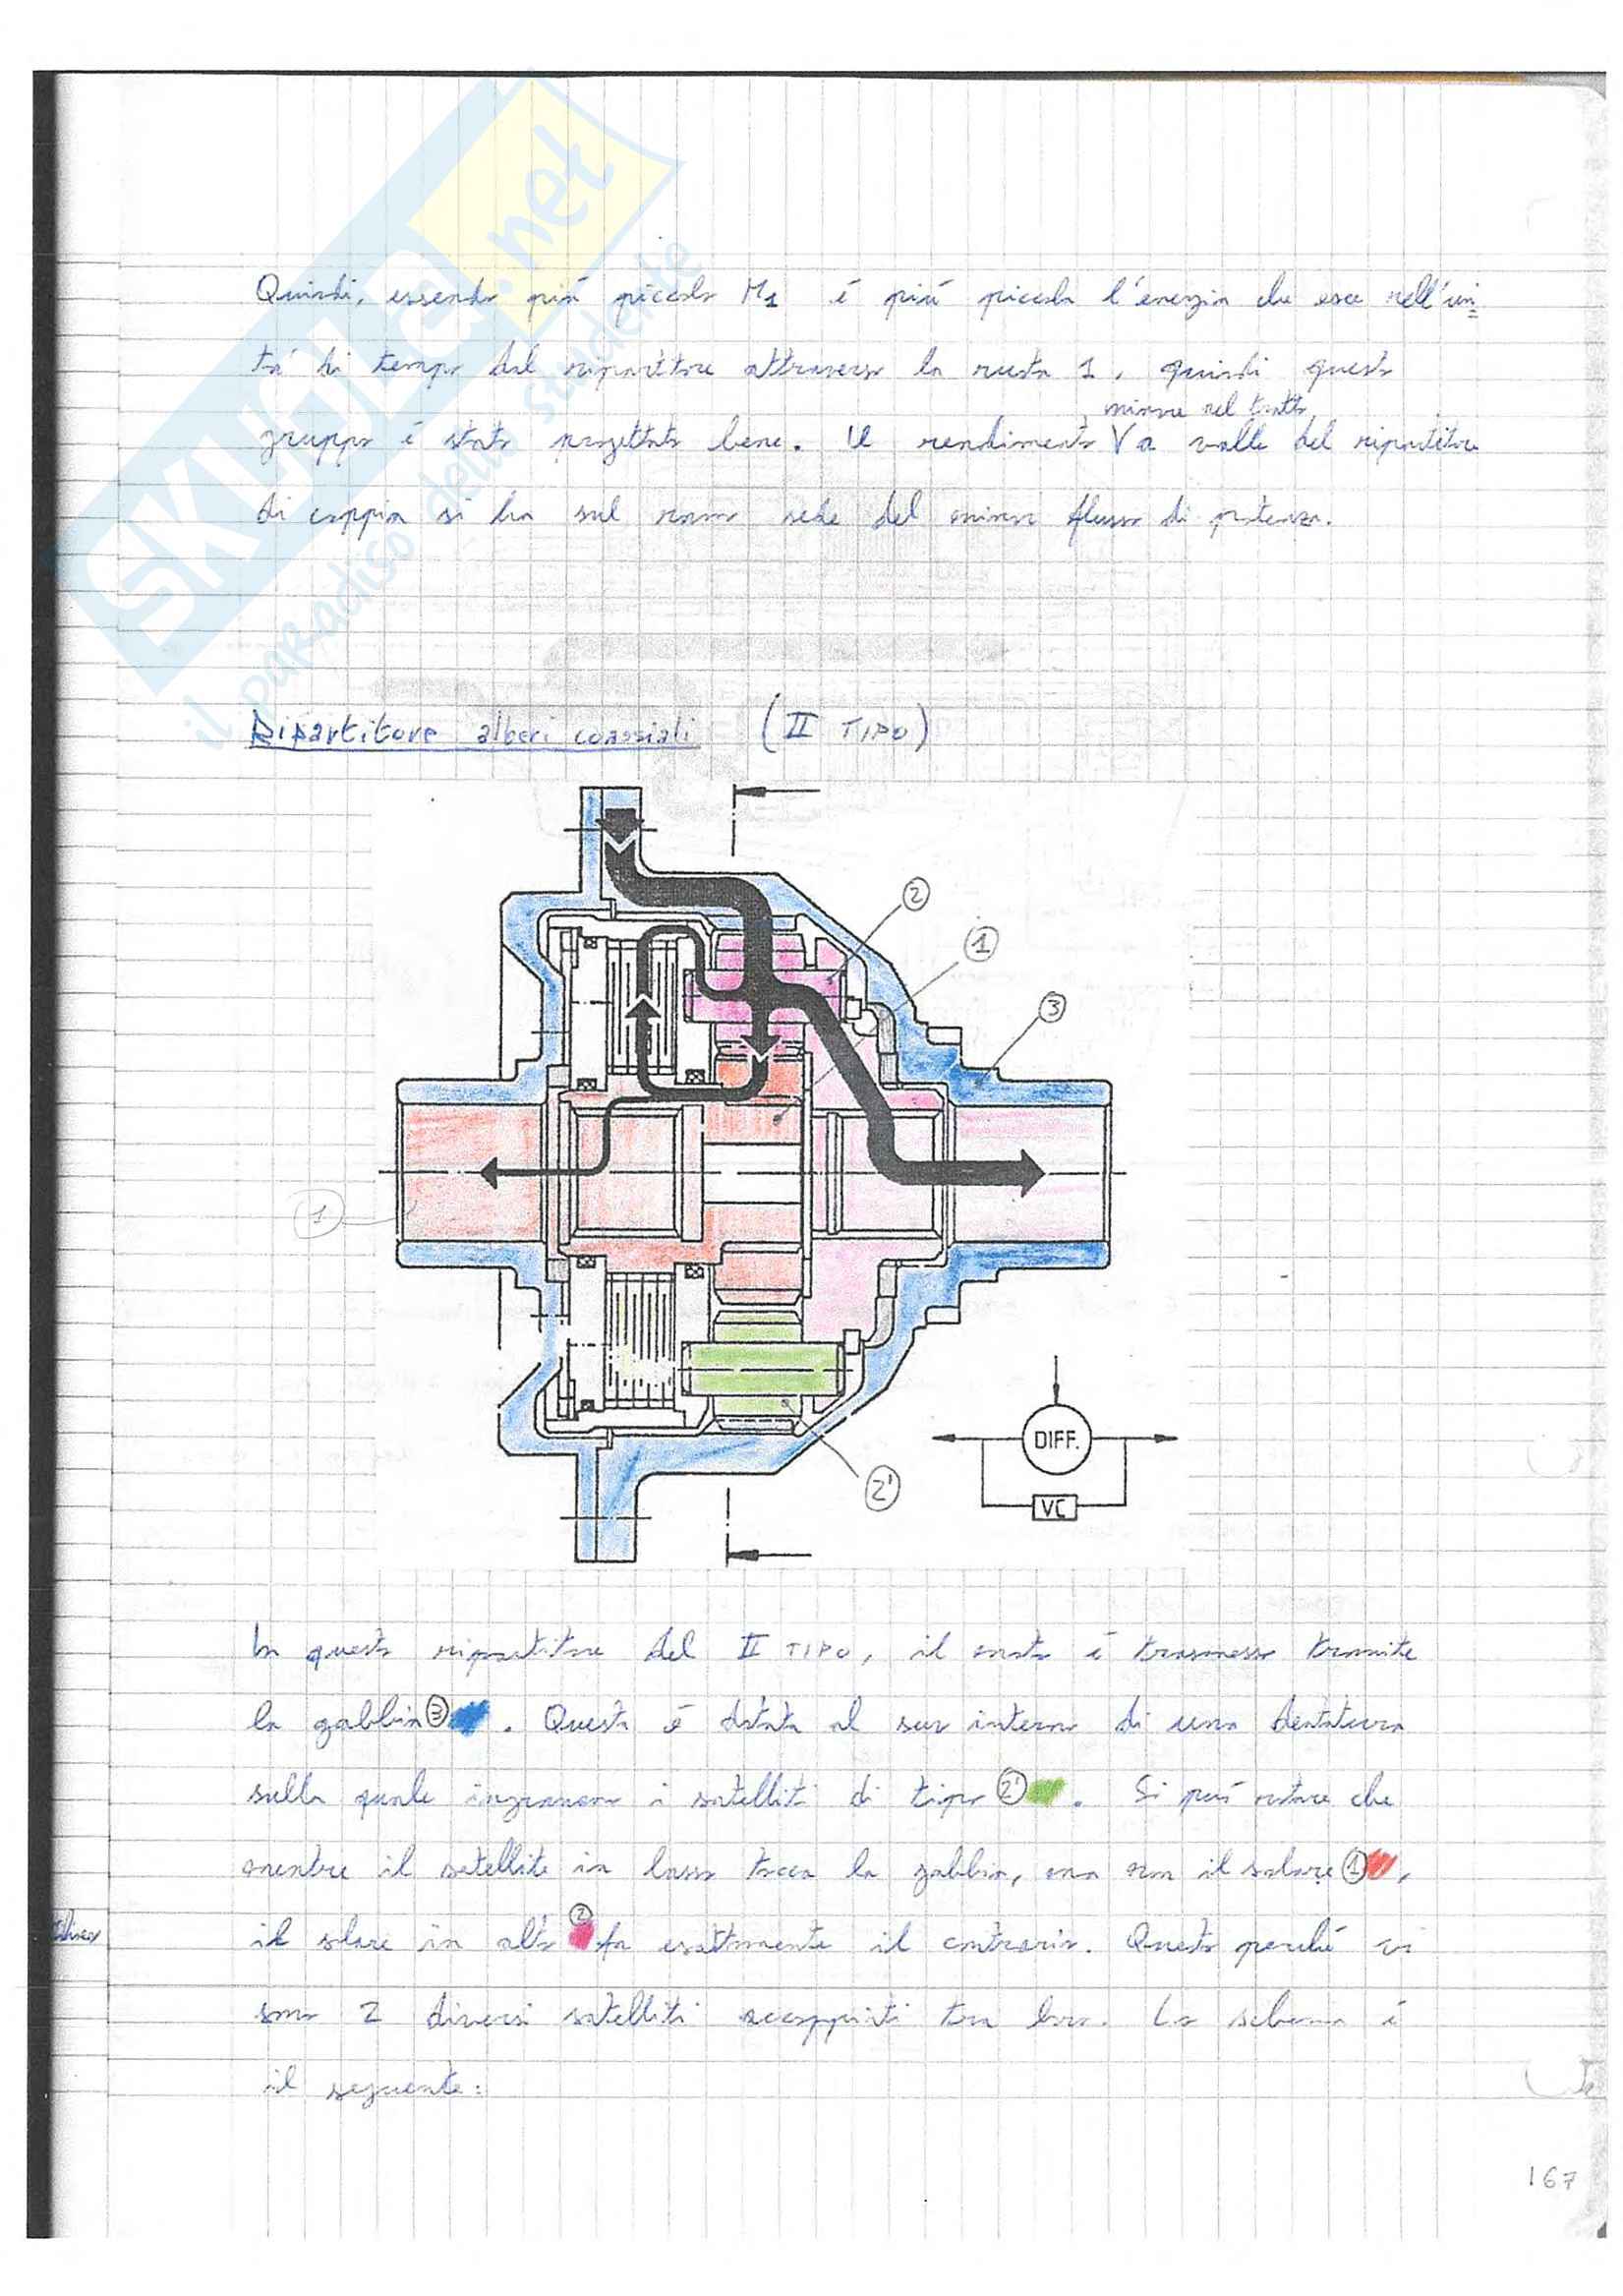 SKUOLA.net
il paradiso dello studente
Quindi, essendo più piccolo M1 é più piccola l'energia che esce nell'uni
tá di tempo dal ripartitore attraverso la ruota 1, quindi questo
minore nel tratto
gruppo é stato progettato bene. Il rendimento V a valle del ripartitore
di coppia si ha sul ramo sede del minor flusso di potenza.
Ripartitore alberi coassiali (II TIPO)
2
1
3
1
DIFF.
VC
2'
In questo ripartitore del II TIPO, il moto é trasmesso tramite
la gabbia 3 . Questa é dotata al suo interno di una dentatura
sulla quale ingranano i satelliti di tipo 2' . Si può notare che
mentre il satellite in basso tocca la gabbia, ma non il solare 1 ,
2
il solare in alto fa esattamente il contrario. Questo perché vi
sono 2 diversi satelliti accoppiati tra loro. Lo schema é
il seguente:
167